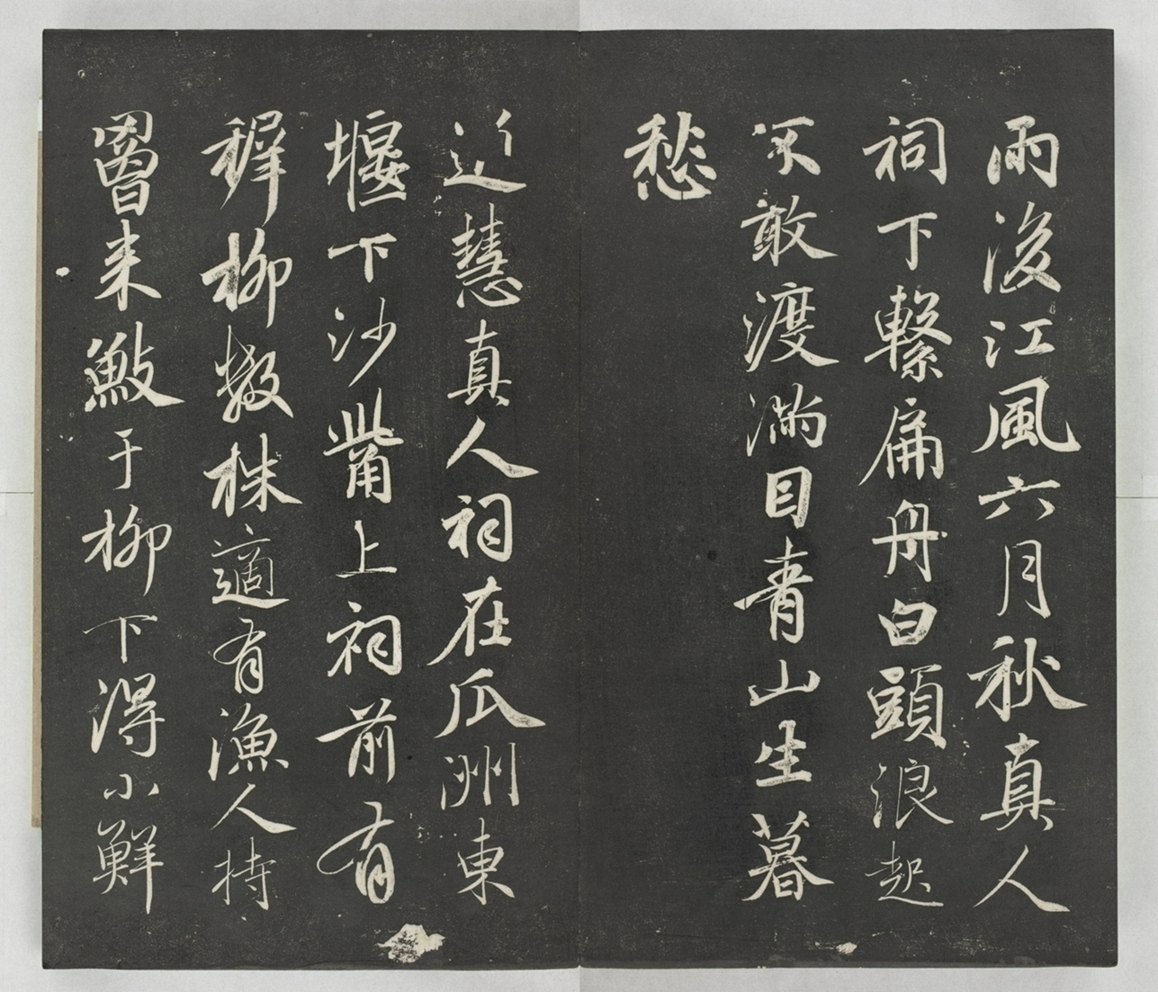 雨後江風六月秋真人
祠下繫扁舟白頭浪起
不敢渡滿目青山生暮
愁
近慧真人祠在瓜洲東
堰下沙觜上祠前有
穉柳數株適有漁人持
罾来𩵋于柳下得小鮮